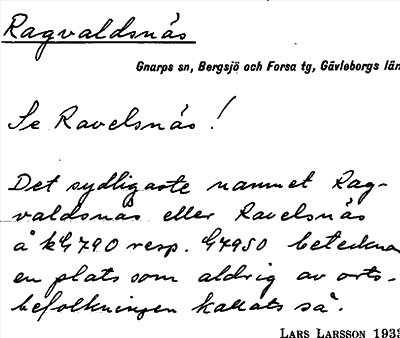 Ragvaldsnäs
Gnarps sn, Bergsjö och Forsa tg, Gävleborgs län
Se Ravelsnäs!
Det sydligaste namnet Rag-
valdsnäs eller Ravelsnäs
å kG790 resp. G7950 betecknar
en plats som aldrig av orts-
befolkningen kallats så.
LARS LARSSON 1933